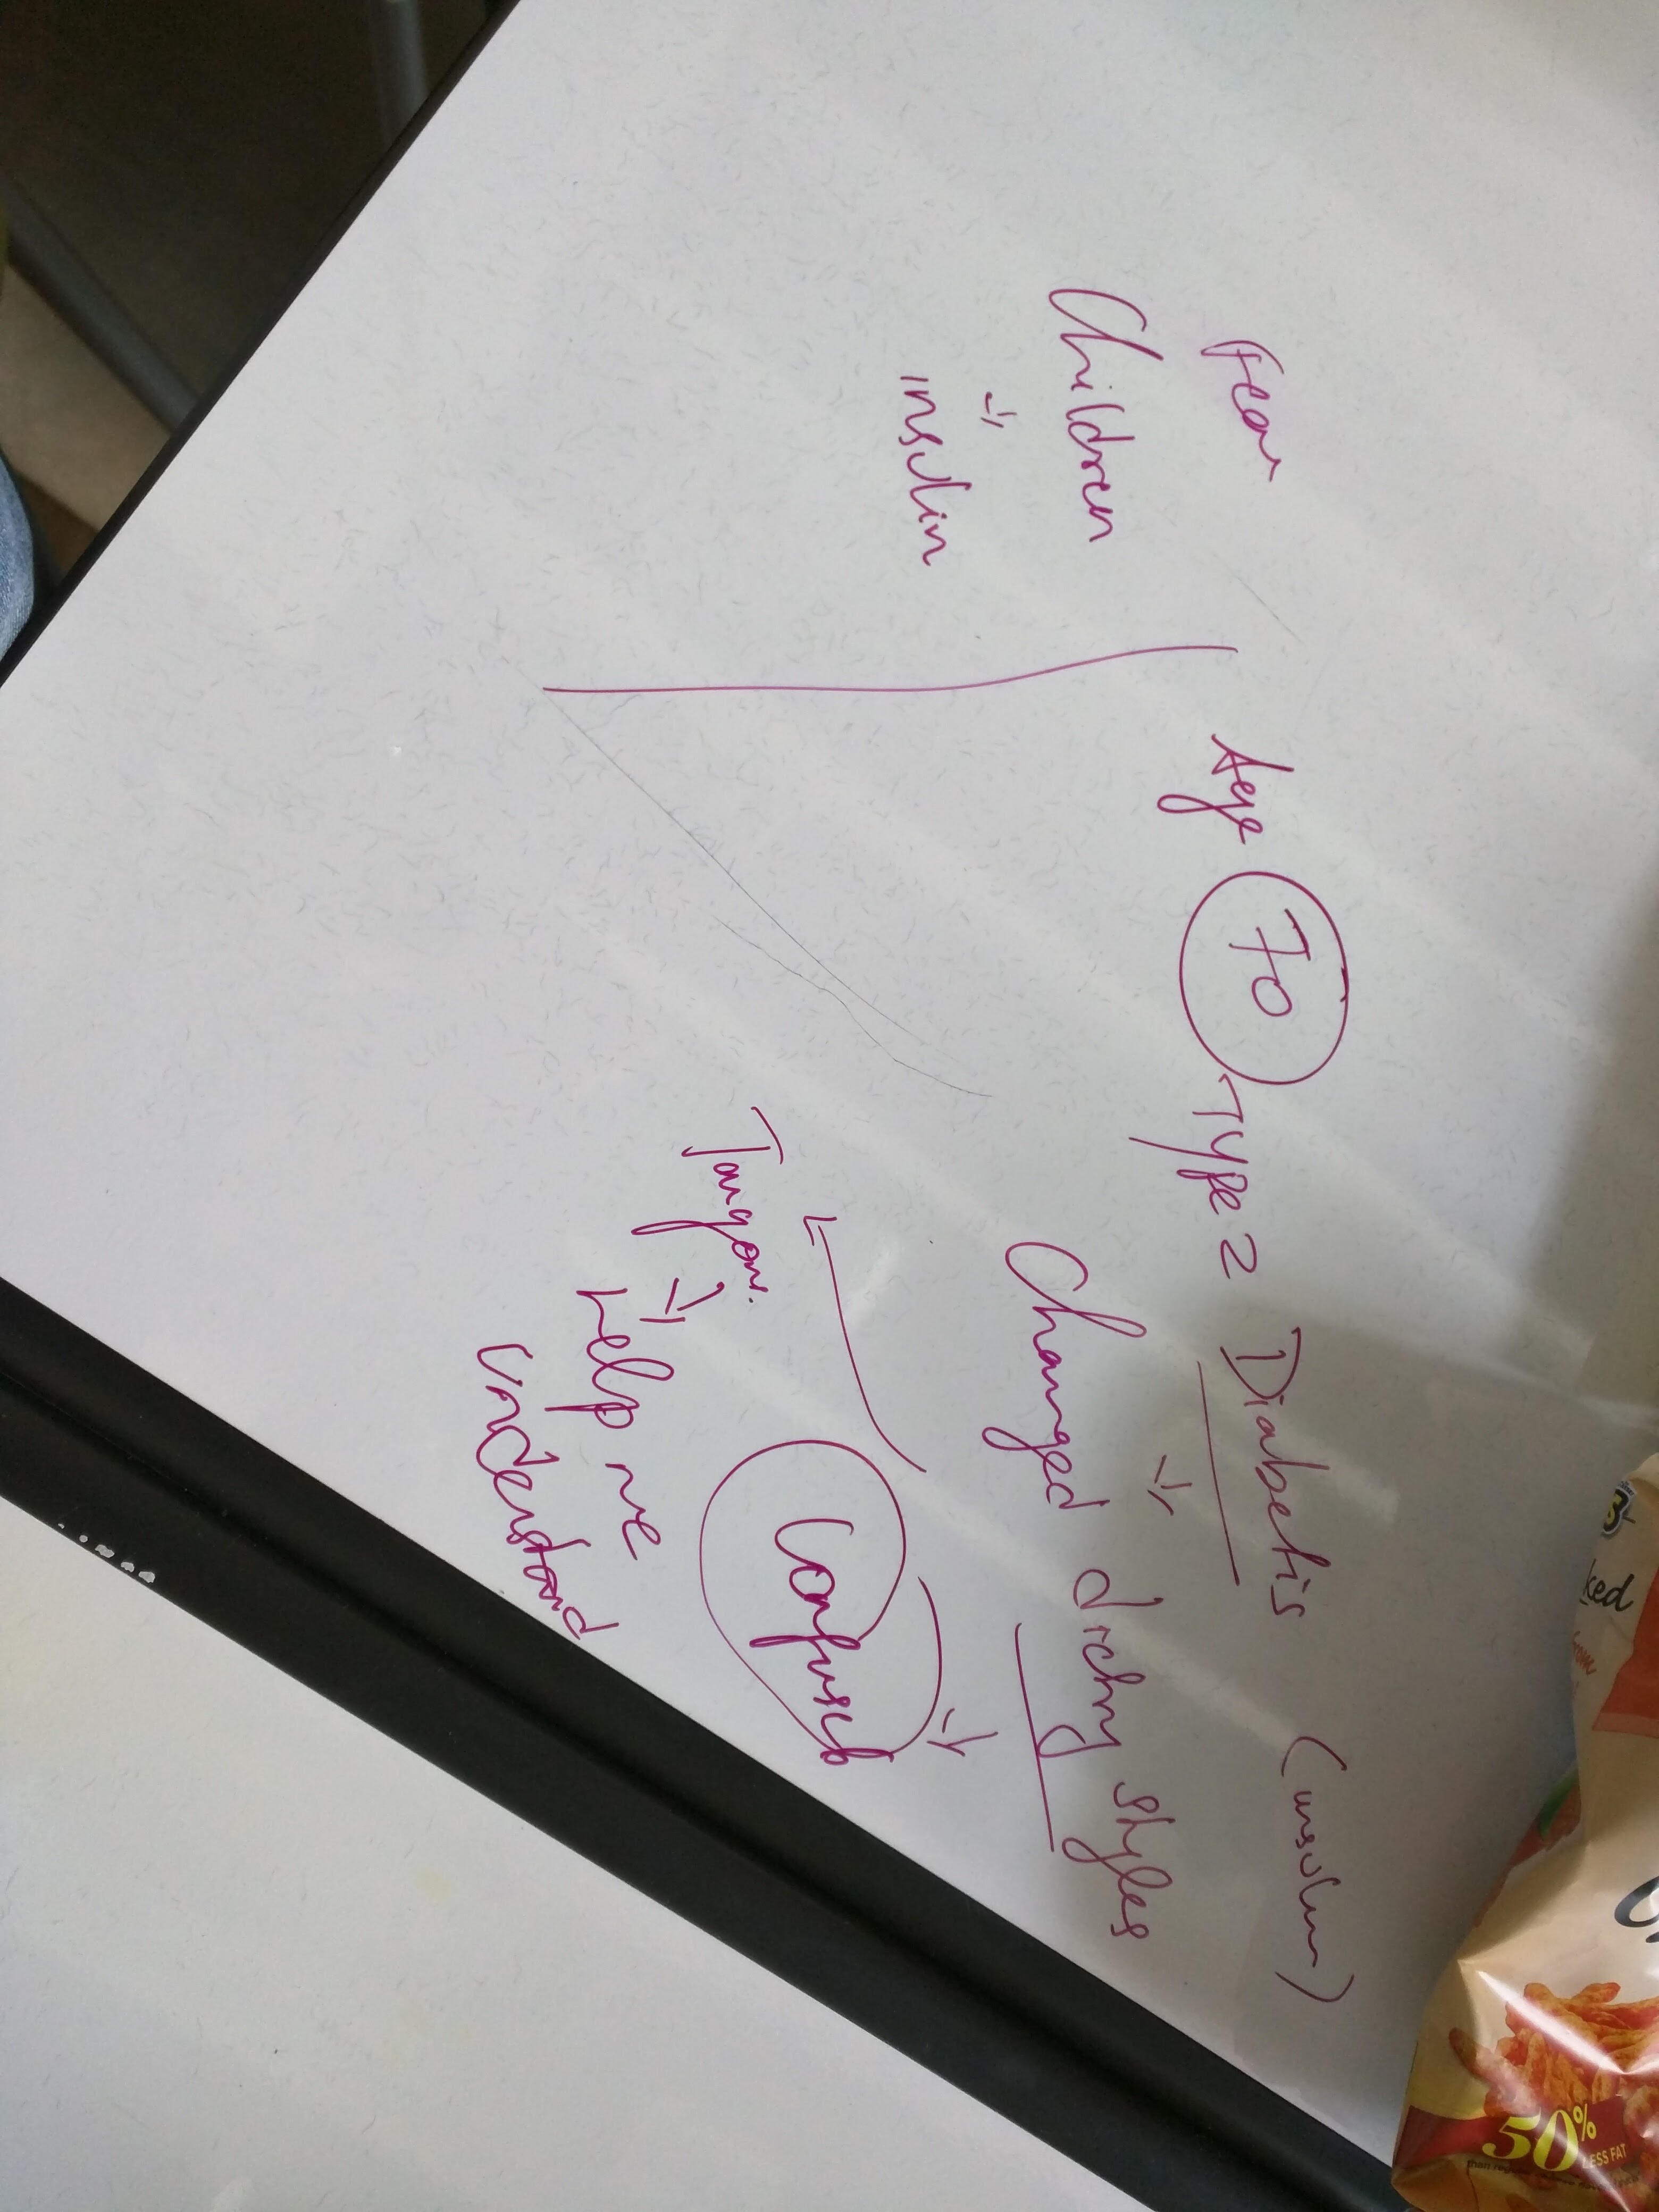 Fear
Children
insulin
Age 70 Type 2 Diabetis (insulin)
Changed dietry styles
Confused
Jargons.
help me
understand
ked
50% LESS FAT